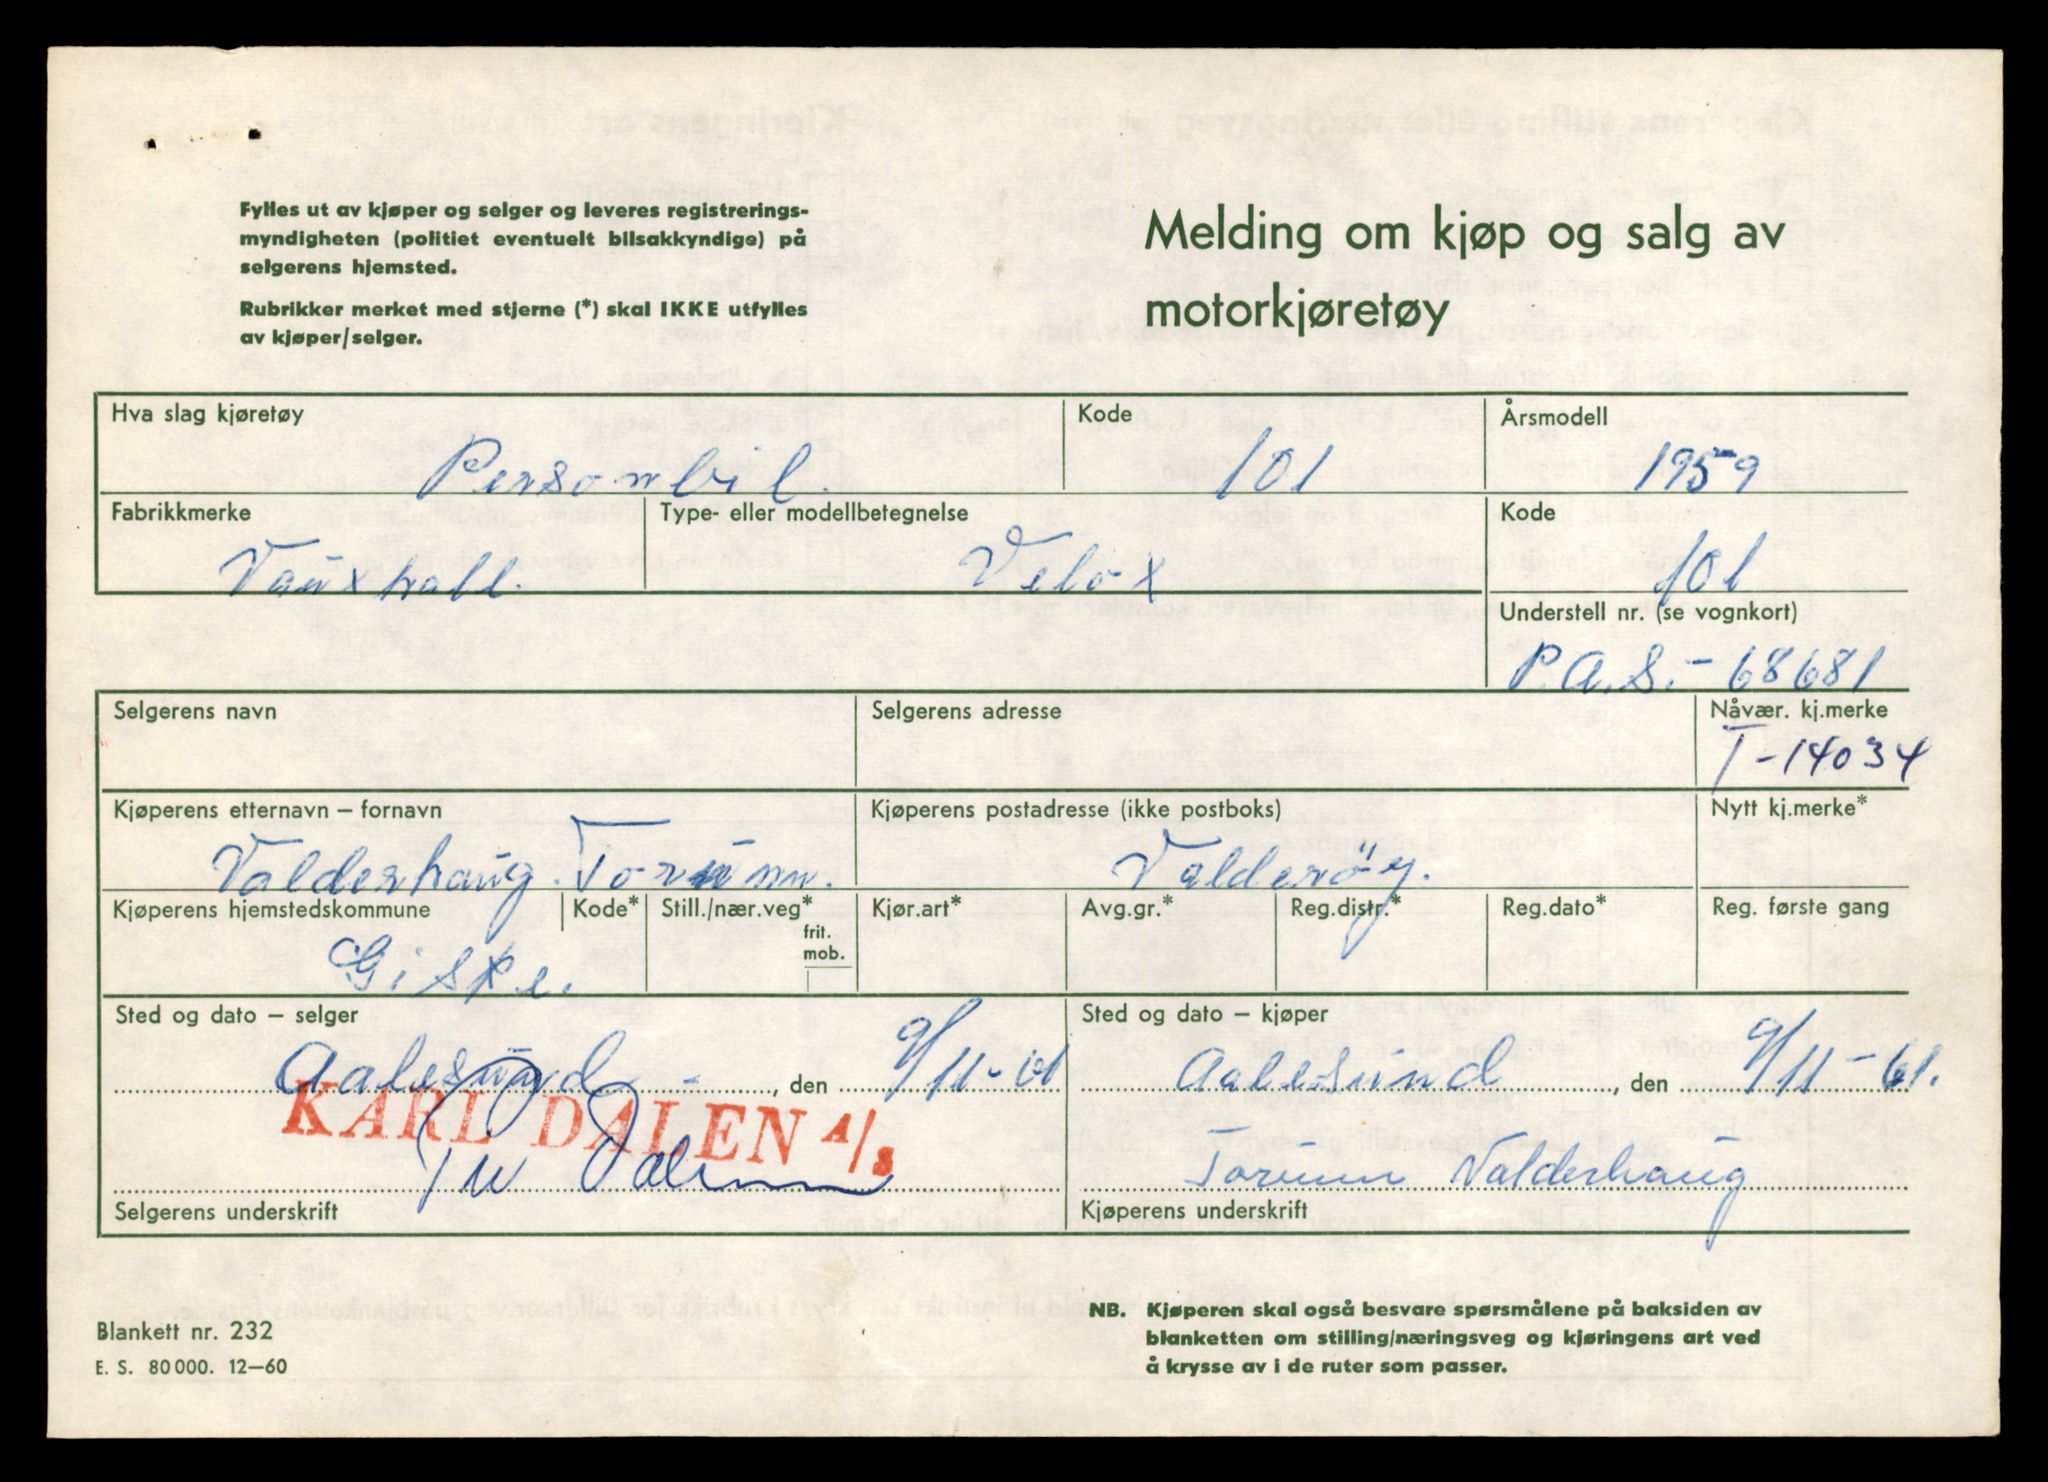 Fylles ut av kjøper og selger og leveres registrerings-
myndigheten (politiet eventuelt bilsakkyndige) på
selgerens hjemsted.
Rubrikker merket med stjerne (*) skal IKKE utfylles
av kjøper/selger.
Melding om kjøp og salg av
motorkjøretøy
Hva slag kjøretøy Kode Årsmodell
Personbil. 101 1959
Fabrikkmerke Type- eller modellbetegnelse Kode
Vauxhall. Velox 101
Understell nr. (se vognkort)
P.A.S.-68681
Selgerens navn Selgerens adresse Nåvær. kj.merke
T-14034
Kjøperens etternavn – fornavn Kjøperens postadresse (ikke postboks) Nytt kj.merke*
Valderhaug. Torunn. Valderöy.
Kjøperens hjemstedskommune Kode* Still./nær.veg* Kjør.art* Avg.gr.* Reg.distr.* Reg.dato* Reg. første gang
frit.
mob.
Giske.
Sted og dato – selger Sted og dato – kjøper
Aalesund - , den 9/11-61 Aalesund , den 9/11-61.
KARL DALEN A/S
Torunn Valderhaug
Selgerens underskrift Kjøperens underskrift
NB. Kjøperen skal også besvare spørsmålene på baksiden av
blanketten om stilling/næringsveg og kjøringens art ved
å krysse av i de ruter som passer.
Blankett nr. 232
E. S. 80 000. 12—60